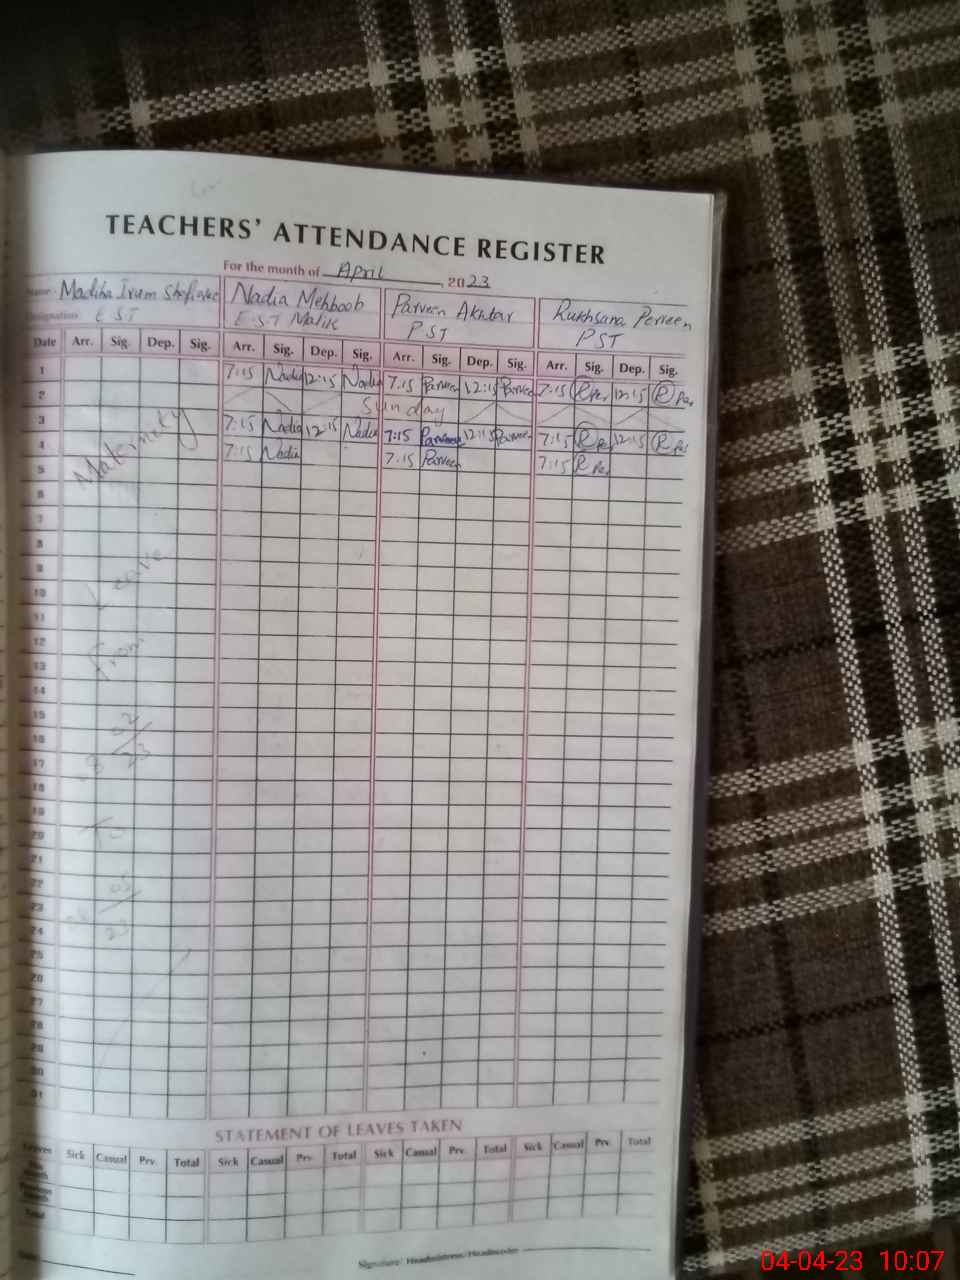 TEACHERS' ATTENDANCE REGISTER
For the month of April, 2023
Name: Madiha Irum Shafique Nadia Mehboob Parveen Akhtar Rukhsana Perveen
Designation EST E.S.T Malik PST PST
Date Arr. Sig. Dep. Sig. Arr. Sig. Dep. Sig. Arr. Sig. Dep. Sig. Arr. Sig. Dep. Sig.
1 7:15 Nadia 12:15 Nadia 7:15 Parveen 12:15 Parveen 7:15 R Per 12:15 R Per
2 Sunday
3 7:15 Nadia 12:15 Nadia 7:15 Parveen 12:15 Parveen 7:15 R Per 12:15 R Per
4 7:15 Nadia 7:15 Parveen 7:15 R Per
5
6
7
8
9
10
11
12
13
14
15
16
17
18
19
20
21
22
23
24
25
26
27
28
29
30
31
Maternity
Leave
From
02
23
To
23
STATEMENT OF LEAVES TAKEN
Leaves Sick Casual Prv. Total Sick Casual Prv. Total Sick Casual Prv. Total Sick Casual Prv. Total
Total
Signature: Headmistress/Headmaster
04-04-23 10:07